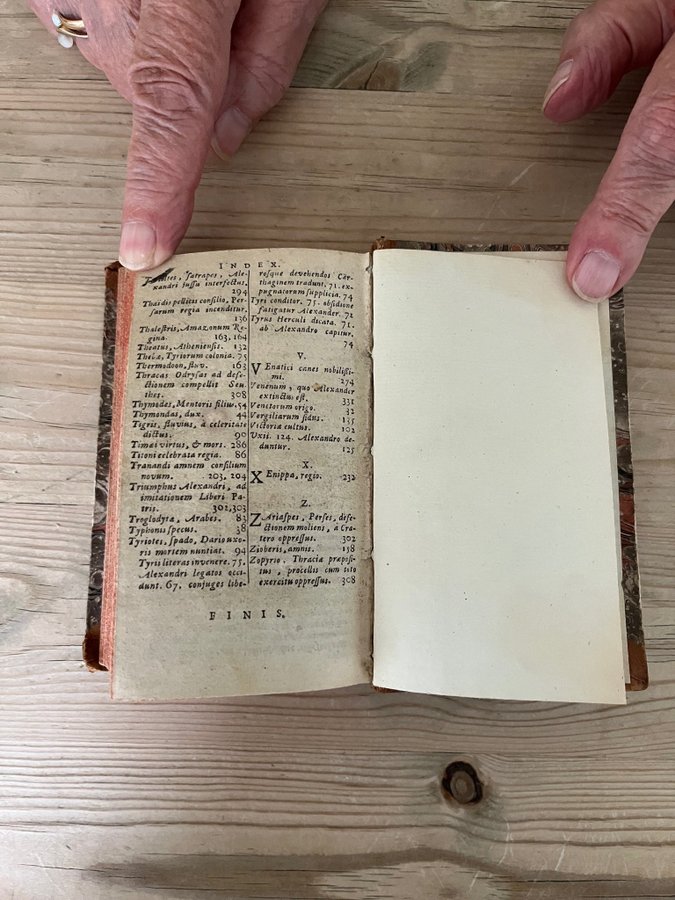 INDEX.
Satrapes, Ale-
xandri jussu interfectus.
294
Thaidis pellicis consilio, Per-
sarum regia incenditur.
136
Thalestris, Amazonum Re-
gina. 163, 164
Theatus, Atheniensis. 132
Thebæ, Tyriorum colonia. 75
Thermodoon, fluv. 163
Thracas Odrysas ad defe-
ctionem compellit Seu-
thes. 308
Thymodes, Mentoris filius. 54
Thymondas, dux. 44
Tigris, fluvius, à celeritate
dictus. 90
Timæi virtus, & mors. 286
Titoni celebrata regia. 86
Tranandi amnem consilium
novum. 203, 204
Triumphus Alexandri, ad
imitationem Liberi Pa-
tris. 302, 303
Troglodytæ, Arabes. 83
Typhonis specus. 38
Tyriotes, spado, Dario uxo-
ris mortem nuntiat. 94
Tyris literas invenere. 75.
Alexandri legatos occi-
dunt. 67. conjuges libe-
rosque devehendos Car-
thaginem tradunt. 71. ex-
pugnatorum supplicia. 74
Tyri conditor. 75. obsidione
fatigatur Alexander. 72
Tyrus Herculi dicata. 71.
ab Alexandro capitur.
74
V.
VEnatici canes nobilissi-
mi. 274
Venenum, quo Alexander
extinctus est. 331
Venetorum origo. 32
Vergiliarum sidus. 135
Victoriæ cultus. 102
Uxii. 124. Alexandro de-
duntur. 125
X.
XEnippa, regio. 232
Z.
ZAriaspes, Perses, defe-
ctionem moliens, à Cra-
tero oppressus. 302
Zioberis, amnis. 158
Zopyrio, Thraciæ præposi-
tus, procellis cum toto
exercitu oppressus. 308
FINIS.